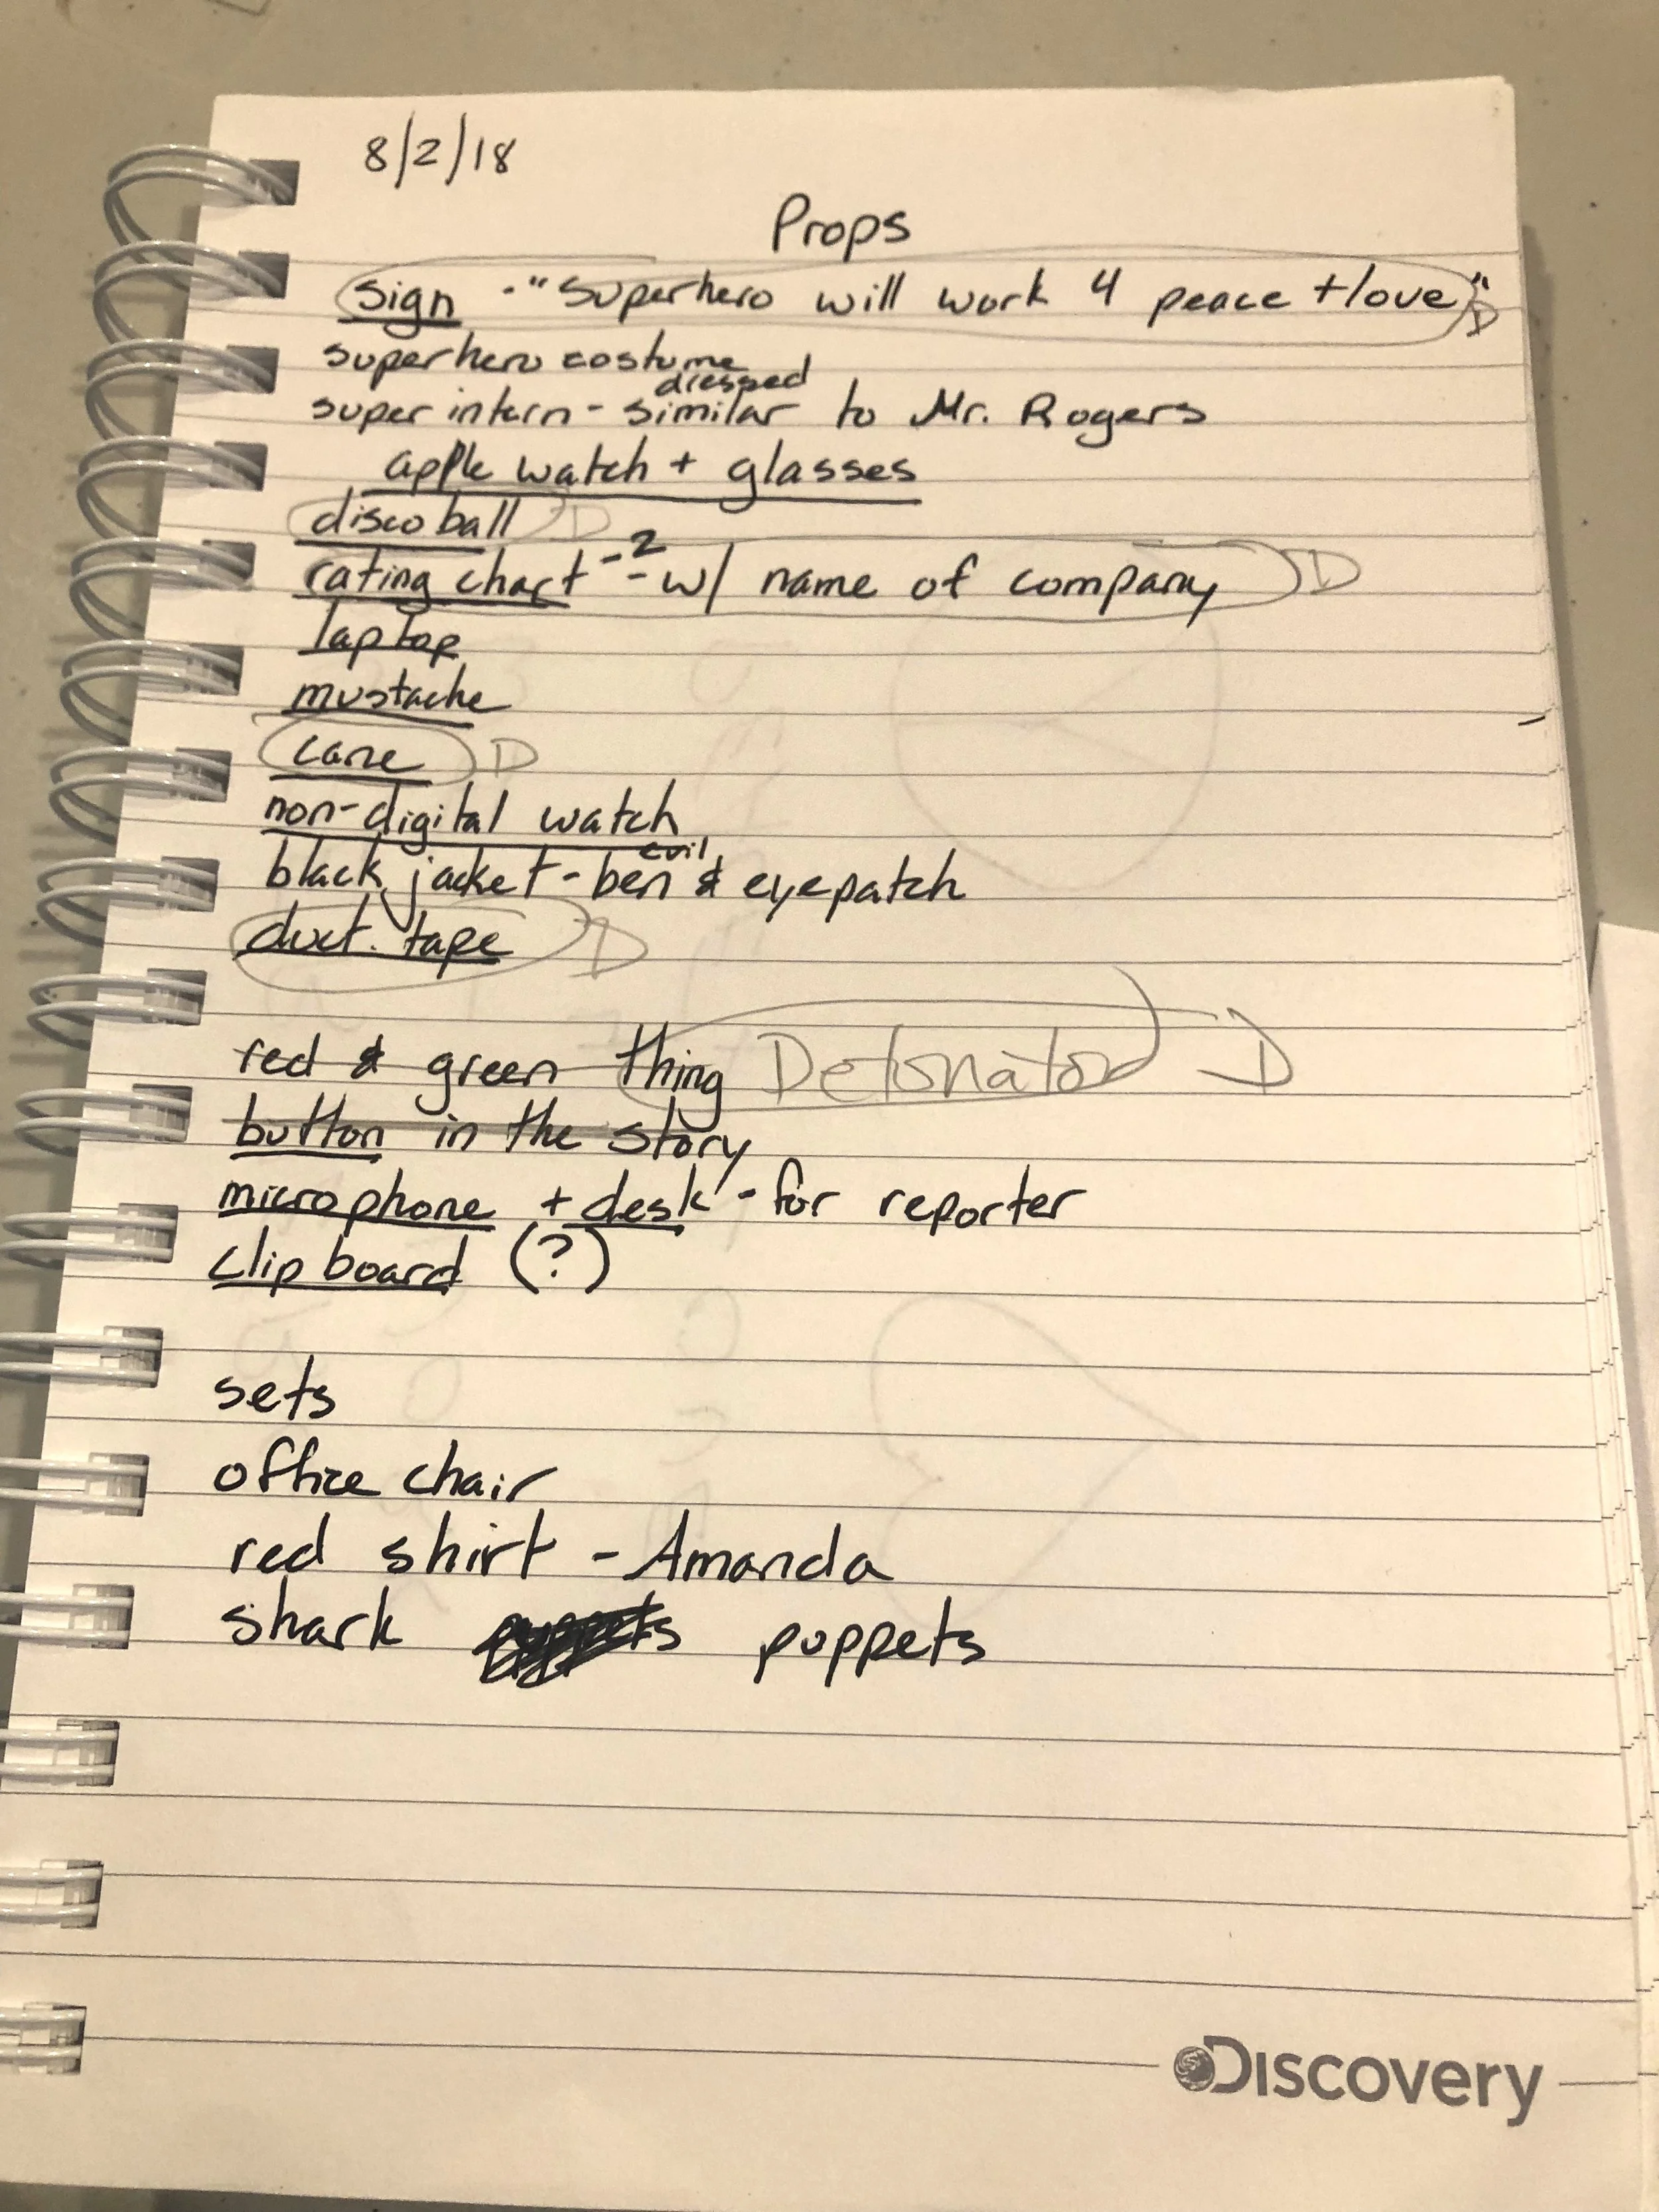 8/2/18
Props
sign - "Superhero will work 4 peace + love" D
superhero costume
dressed
super intern - similar to Mr. Rogers
apple watch + glasses
disco ball D
rating chart - 2 - w/ name of company D
laptop
mustache
cane D
non-digital watch
evil
black jacket - ben & eyepatch
duct. tape D
red & green thing Detonator D
button in the story
microphone + desk - for reporter
clip board (?)
sets
office chair
red shirt - Amanda
shark puppets puppets
DISCOVERY